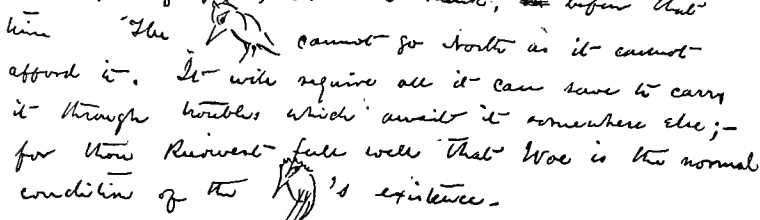 before that
time "The cannot go North as it cannot
afford it. It will require all it can save to carry
it through troubles which await it somewhere else;-
for thou knowest full well that Woe is the normal
condition of the 's existence.